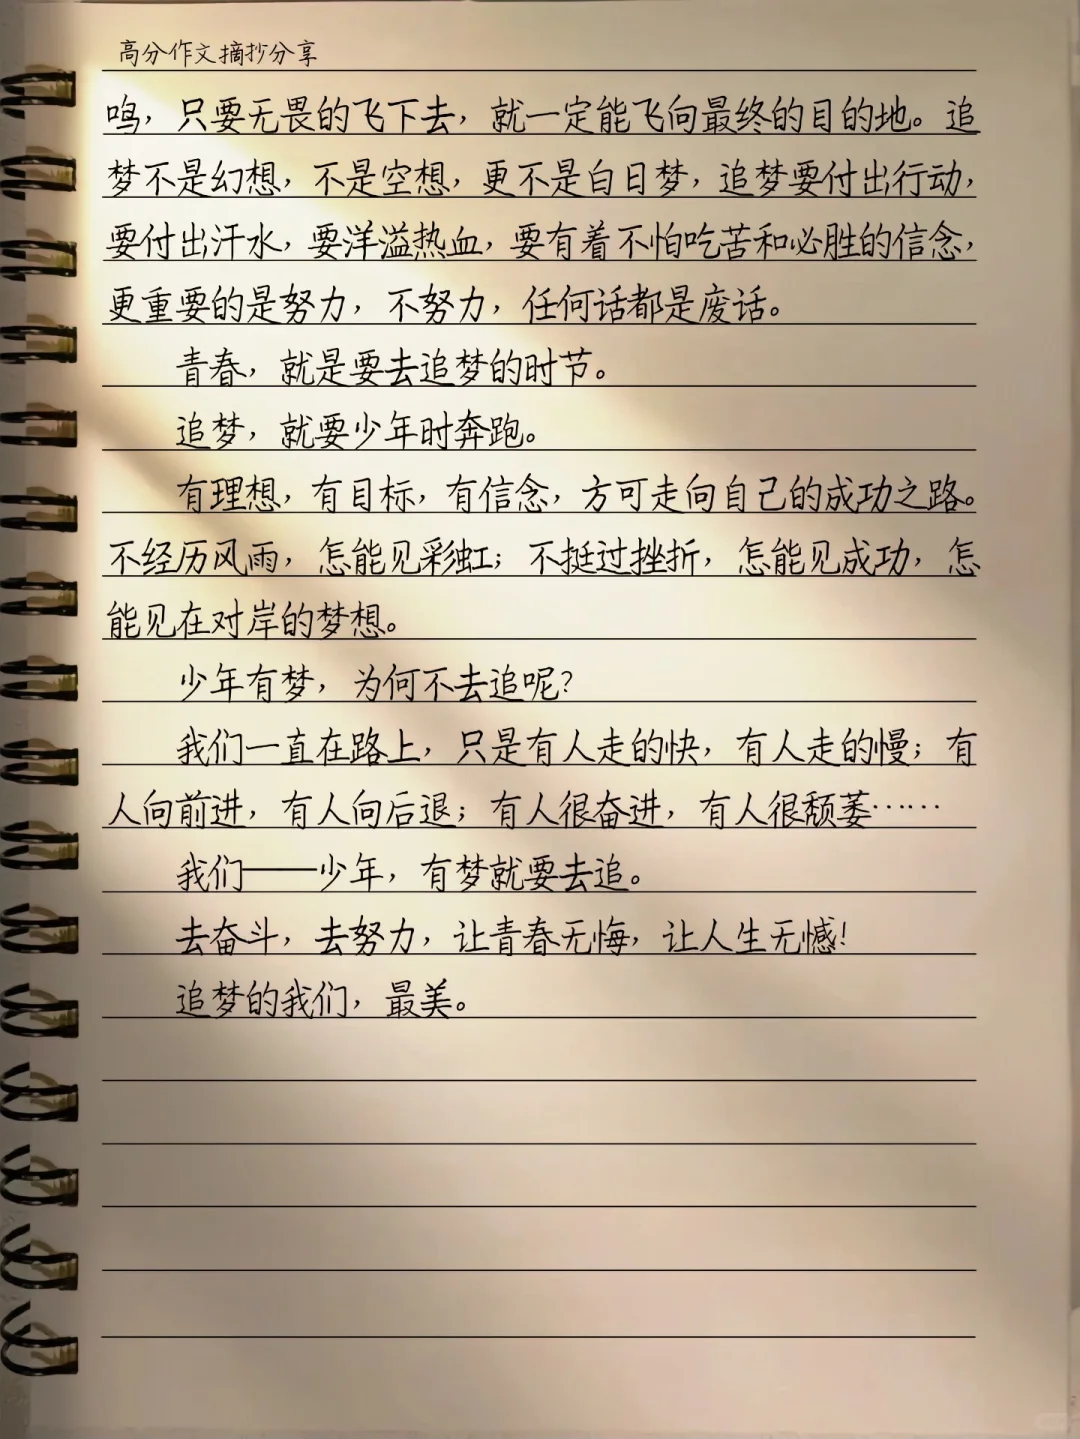 高分作文摘抄分享
鸣，只要无畏的飞下去，就一定能飞向最终的目的地。追
梦不是幻想，不是空想，更不是白日梦，追梦要付出行动，
要付出汗水，要洋溢热血，要有着不怕吃苦和必胜的信念，
更重要的是努力，不努力，任何话都是废话。
青春，就是要去追梦的时节。
追梦，就要少年时奔跑。
有理想，有目标，有信念，方可走向自己的成功之路。
不经历风雨，怎能见彩虹；不挺过挫折，怎能见成功，怎
能见在对岸的梦想。
少年有梦，为何不去追呢？
我们一直在路上，只是有人走的快，有人走的慢；有
人向前进，有人向后退；有人很奋进，有人很颓萎……
我们——少年，有梦就要去追。
去奋斗，去努力，让青春无悔，让人生无憾！
追梦的我们，最美。